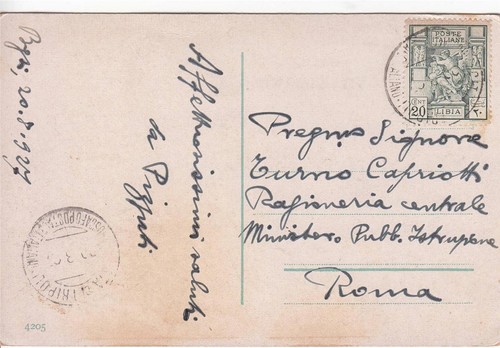 20.8.927
Affettuosissimi saluti
da
POSTE
ITALIANE
CENT
20
LIBIA
٢٠
Pregmo Signore
Turno Capriotti
Ragioneria centrale
Ministero Pubb. Istruzione
Roma
TRIPOLI
4205